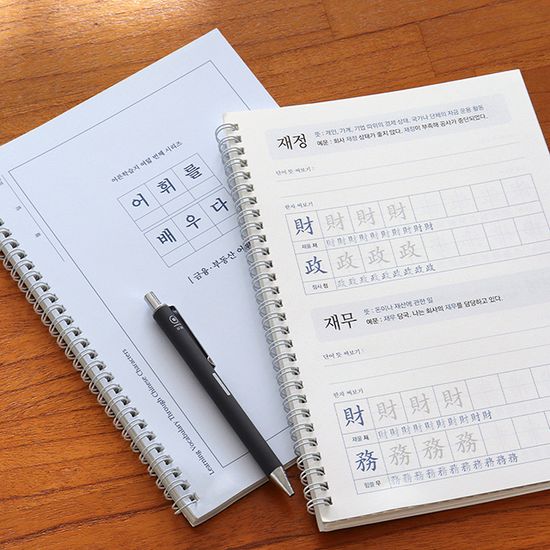 어른학습지 여덟 번째 시리즈
어휘를
배우다
금융·부동산 어휘
Learning Vocabulary Through Chinese Characters
재정
뜻 : 개인, 가계, 기업 따위의 경제 상태. 국가나 단체의 자금 운용 활동
예문 : 회사 재정 상태가 좋지 않다. 재정이 부족해 공사가 중단되었다.
단어 뜻 써보기 :
한자 써보기
財 財 財 財
재물 재 財財財財財財財財財
政 政 政 政
정사 정 政政政政政政
재무
뜻 : 돈이나 재산에 관한 일
예문 : 재무 당국. 나는 회사의 재무를 담당하고 있다.
단어 뜻 써보기 :
한자 써보기
財 財 財 財
재물 재 財財財財財財財財財
務 務 務 務
힘쓸 무 務務務務務務務務